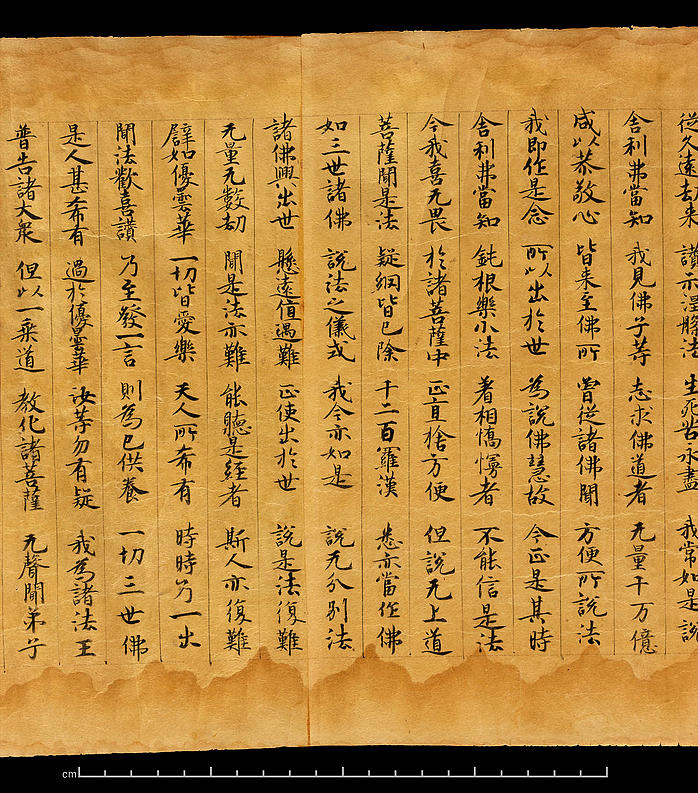 從久遠劫來 讚示涅槃法 生死苦永盡 我常如是說
舍利弗當知 我見佛子等 志求佛道者 无量千万億
咸以恭敬心 皆来至佛所 曾從諸佛聞 方便所說法
我即作是念 所以出於世 為說佛慧故 今正是其時
舍利弗當知 鈍根樂小法 著相憍慢者 不能信是法
今我喜无畏 於諸菩薩中 正直捨方便 但說无上道
菩薩聞是法 疑網皆已除 千二百羅漢 悉亦當作佛
如三世諸佛 說法之儀式 我今亦如是 說无分別法
諸佛興出世 懸遠值遇難 正使出於世 說是法復難
无量无數劫 聞是法亦難 能聽是經者 斯人亦復難
譬如優曇華 一切皆愛樂 天人所希有 時時乃一出
聞法歡喜讚 乃至發一言 則為已供養 一切三世佛
是人甚希有 過於優曇華 汝等勿有疑 我為諸法王
普告諸大眾 但以一乘道 教化諸菩薩 无聲聞弟子
cm